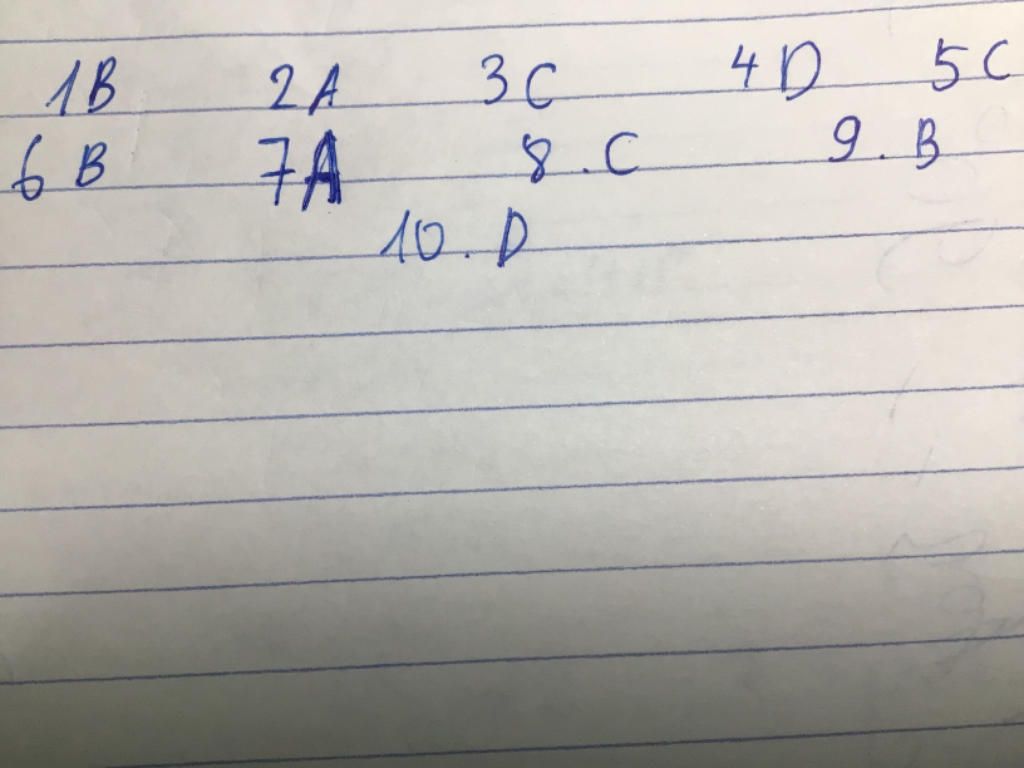 1B 2A 3C 4D 5C
6 B 7A 8. C 9. B
10. D